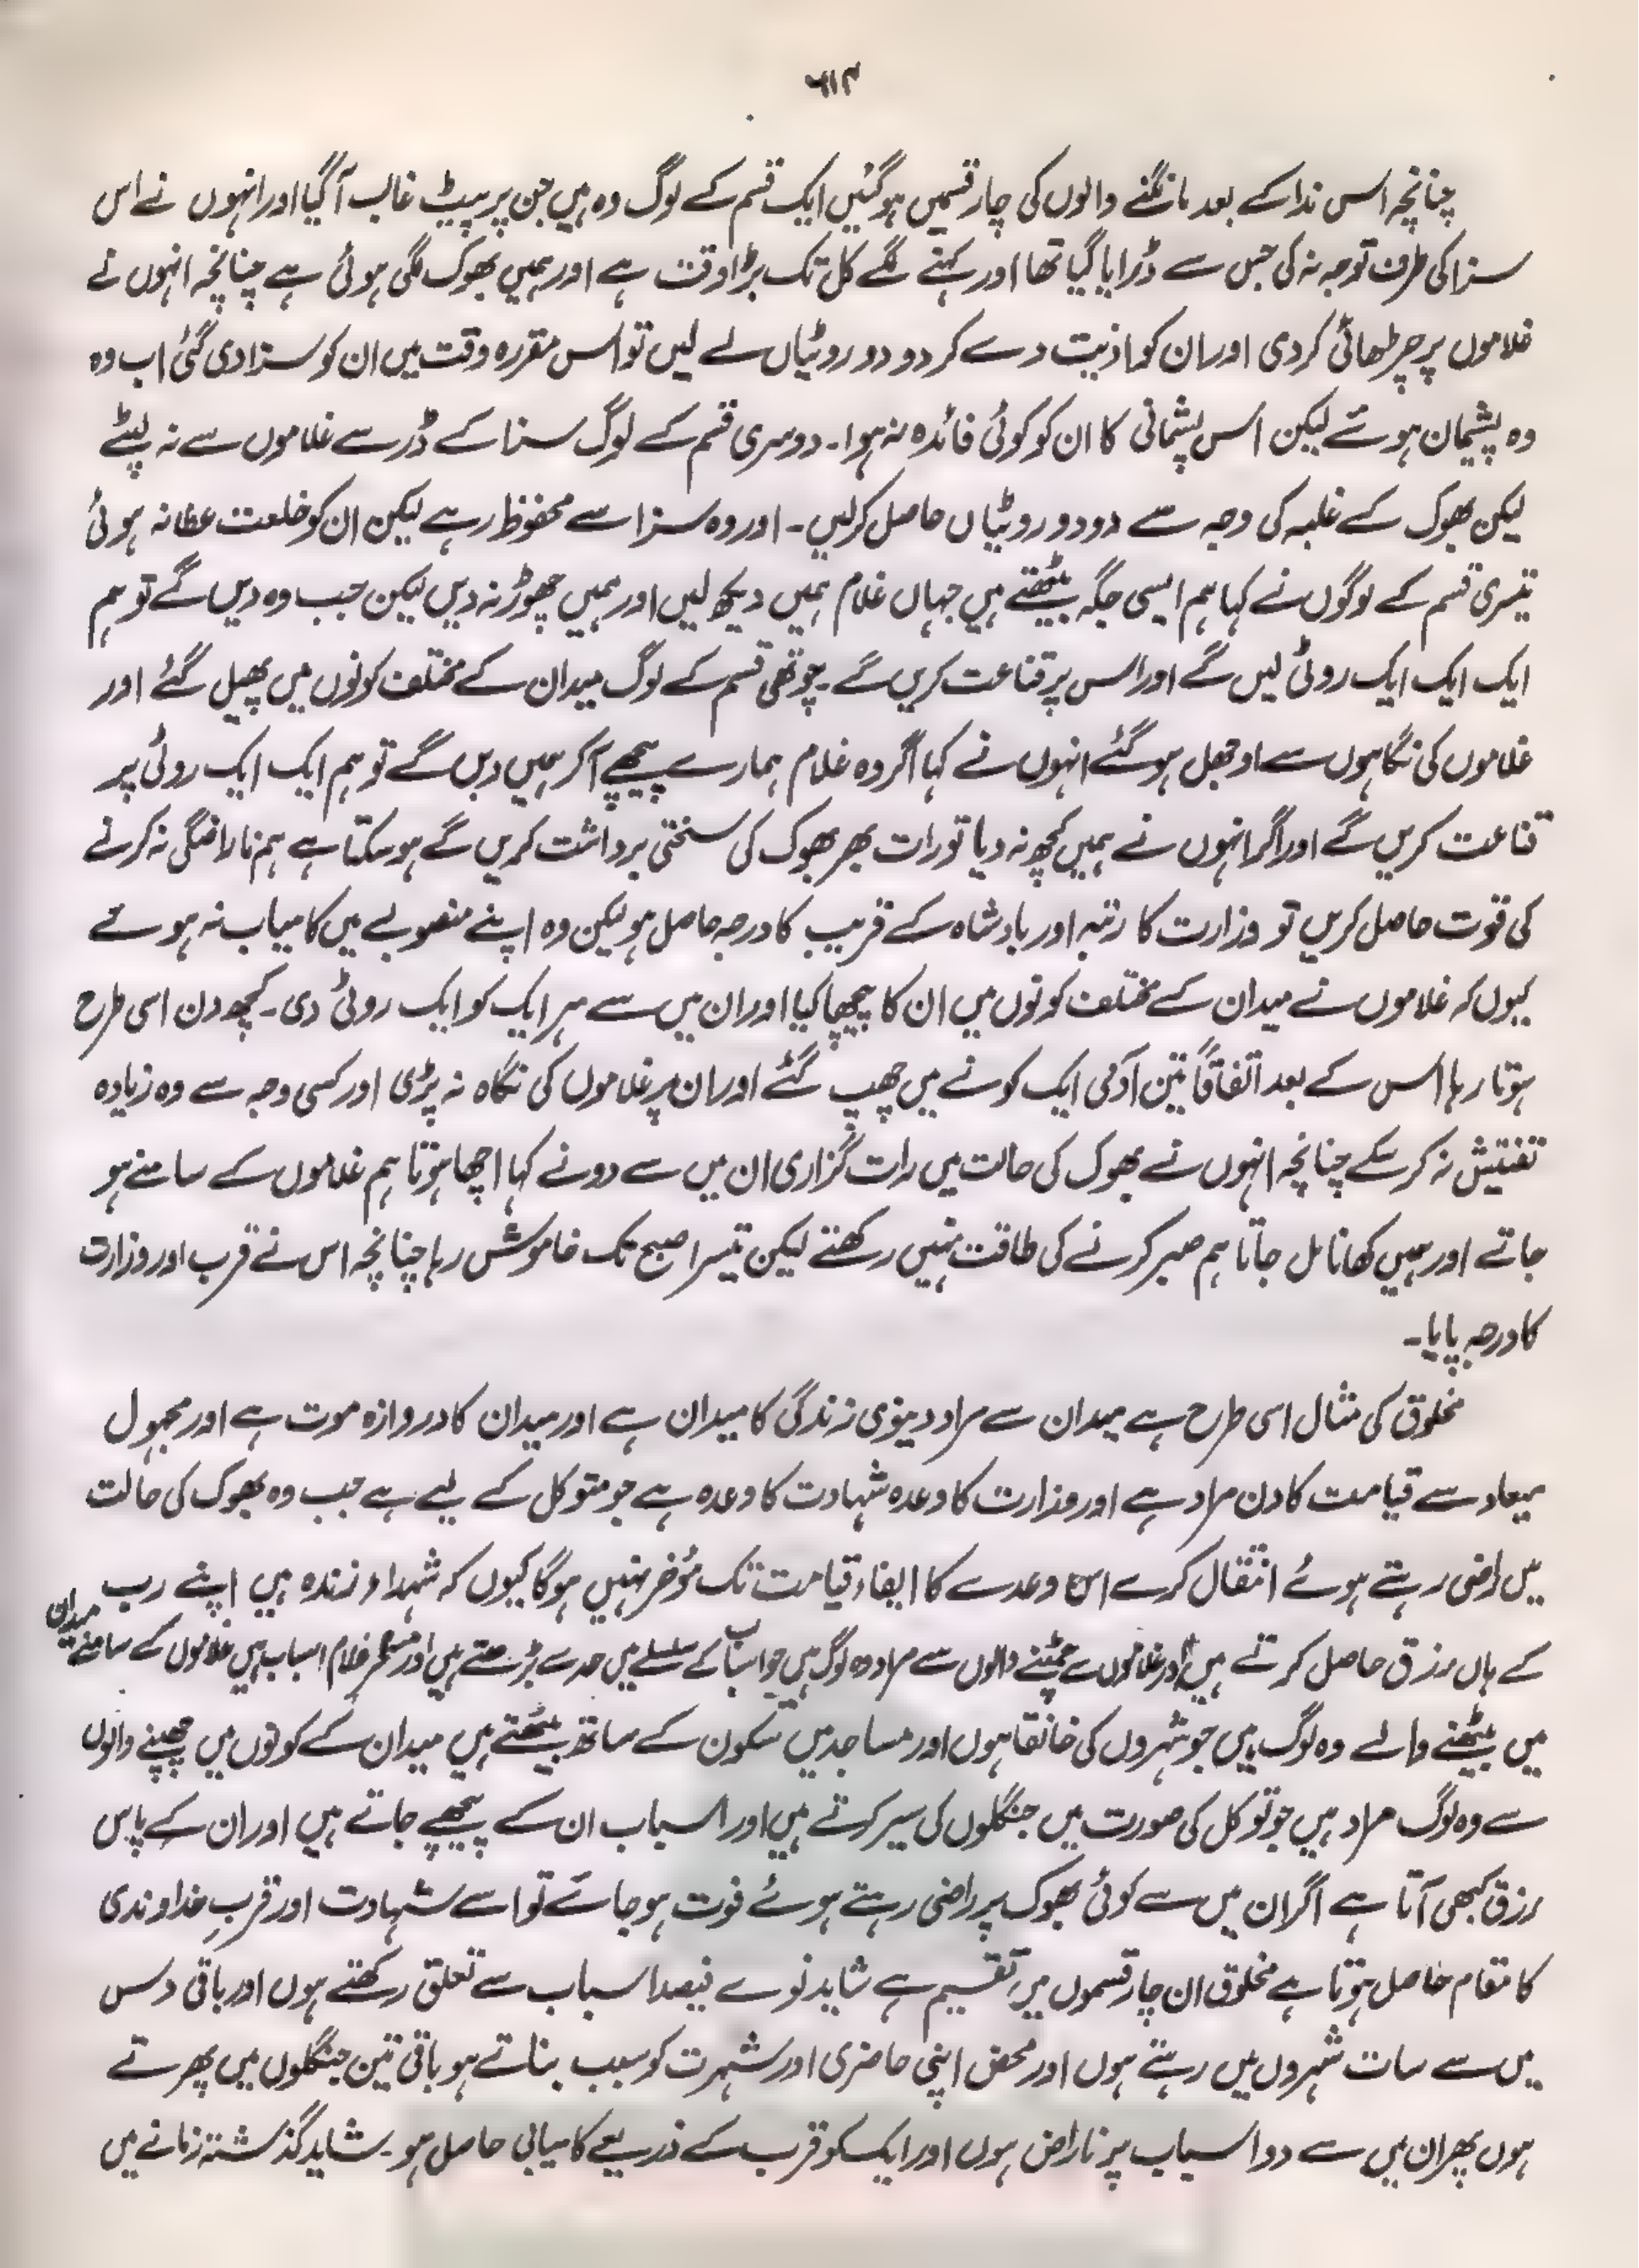 ۶۱۴
چنانچہ اس ندا کے بعد مانگنے والوں کی چار قسمیں ہوگئیں ایک قسم کے لوگ وہ ہیں جن پر پیٹ غالب آگیا اور انہوں نے اس
سزا کی طرف توجہ نہ کی جس سے ڈرایا گیا تھا اور کہنے لگے کل تک بڑا وقت ہے اور ہمیں بھوک لگی ہوئی ہے چنانچہ انہوں نے
غلاموں پر چڑھائی کردی اور ان کو اذیت دے کر دو دو روٹیاں لے لیں تو اس مقررہ وقت میں ان کو سزا دی گئی اب وہ
وہ پشیمان ہوئے لیکن اس پشیمانی کا ان کو کوئی فائدہ نہ ہوا۔ دوسری قسم کے لوگ سزا کے ڈر سے غلاموں سے نہ لپٹے
لیکن بھوک کے غلبہ کی وجہ سے دو دو روٹیاں حاصل کرلیں۔ اور وہ سزا سے محفوظ رہے لیکن ان کو خلعت عطا نہ ہوئی
تیسری قسم کے لوگوں نے کہا ہم ایسی جگہ بیٹھتے ہیں جہاں غلام ہمیں دیکھ لیں اور ہمیں چھوڑ نہ دیں لیکن جب وہ دیں گے تو ہم
ایک ایک ایک روٹی لیں گے اور اس پر قناعت کریں گے۔ چوتھی قسم کے لوگ میدان کے مختلف کونوں میں پھیل گئے اور
غلاموں کی نگاہوں سے اوجھل ہوگئے انہوں نے کہا اگر وہ غلام ہمارے پیچھے آکر ہمیں دیں گے تو ہم ایک ایک روٹی پر
قناعت کریں گے اور اگر انہوں نے ہمیں کچھ نہ دیا تو رات بھر بھوک کی سختی برداشت کریں گے ہوسکتا ہے ہم ناراضگی نہ کرنے
کی قوت حاصل کریں تو وزارت کا رتبہ اور بادشاہ کے قریب کا درجہ حاصل ہو لیکن وہ اپنے منصوبے میں کامیاب نہ ہوئے
کیوں کہ غلاموں نے میدان کے مختلف کونوں میں ان کا پیچھا کیا اور ان میں سے ہر ایک کو ایک روٹی دی۔ کچھ دن اسی طرح
ہوتا رہا اس کے بعد اتفاقاً تین آدمی ایک کونے میں چھپ گئے اور ان پر غلاموں کی نگاہ نہ پڑی اور کسی وجہ سے وہ زیادہ
تفتیش نہ کرسکے چنانچہ انہوں نے بھوک کی حالت میں رات گزاری ان میں سے دو نے کہا اچھا ہوتا ہم غلاموں کے سامنے ہو
جاتے اور ہمیں کھانا مل جاتا ہم صبر کرنے کی طاقت نہیں رکھتے لیکن تیسرا صبح تک خاموش رہا چنانچہ اس نے قرب اور وزارت
کا درجہ پایا۔
مخلوق کی مثال اسی طرح ہے میدان سے مراد دنیوی زندگی کا میدان ہے اور میدان کا دروازہ موت ہے اور مجہول
میعاد سے قیامت کا دن مراد ہے اور وزارت کا وعدہ شہادت کا وعدہ ہے جو متوکل کے لیے ہے جب وہ بھوک کی حالت
میں راضی رہتے ہوئے انتقال کرے اس وعدے کا ایفاء قیامت تک مؤخر نہیں ہوگا کیوں کہ شہداء زندہ ہیں اپنے رب
کے ہاں رزق حاصل کرتے ہیں اور غلاموں سے چمٹنے والوں سے مراد وہ لوگ ہیں جو اسباب کے سلسلے میں حد سے بڑھتے ہیں اور مسخر غلام اسباب ہیں غلاموں کے سامنے میدان
میں بیٹھنے والے وہ لوگ ہیں جو شہروں کی خانقاہوں اور مساجد میں سکون کے ساتھ بیٹھتے ہیں میدان کے کونوں میں چھپنے والوں
سے وہ لوگ مراد ہیں جو توکل کی صورت میں جنگلوں کی سیر کرتے ہیں اور اسباب ان کے پیچھے جاتے ہیں اور ان کے پاس
رزق کبھی آتا ہے اگر ان میں سے کوئی بھوک پر راضی رہتے ہوئے فوت ہوجائے تو اسے شہادت اور قربِ خداوندی
کا مقام حاصل ہوتا ہے مخلوق ان چار قسموں میں تقسیم ہے شاید نوے فیصد اسباب سے تعلق رکھتے ہوں اور باقی دس
میں سے سات شہروں میں رہتے ہوں اور محض اپنی حاضری اور شہرت کو سبب بناتے ہو باقی تین جنگلوں میں پھرتے
ہوں پھر ان میں سے دو اسباب پر ناراض ہوں اور ایک کو قرب کے ذریعے کامیابی حاصل ہو۔ شاید گذشتہ زمانے میں